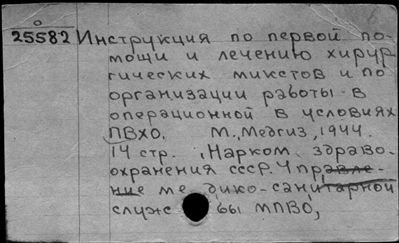 25582 Инструкция по первой по-
мощи и лечению хирур-
гических микстов и по
организации работы в
операционной в условиях
ПВХО. М., Медгиз, 1944.
14 стр. (Нарком. здраво-
охранения ссср. Управле-
ние медико-санитарной
службы МПВО,